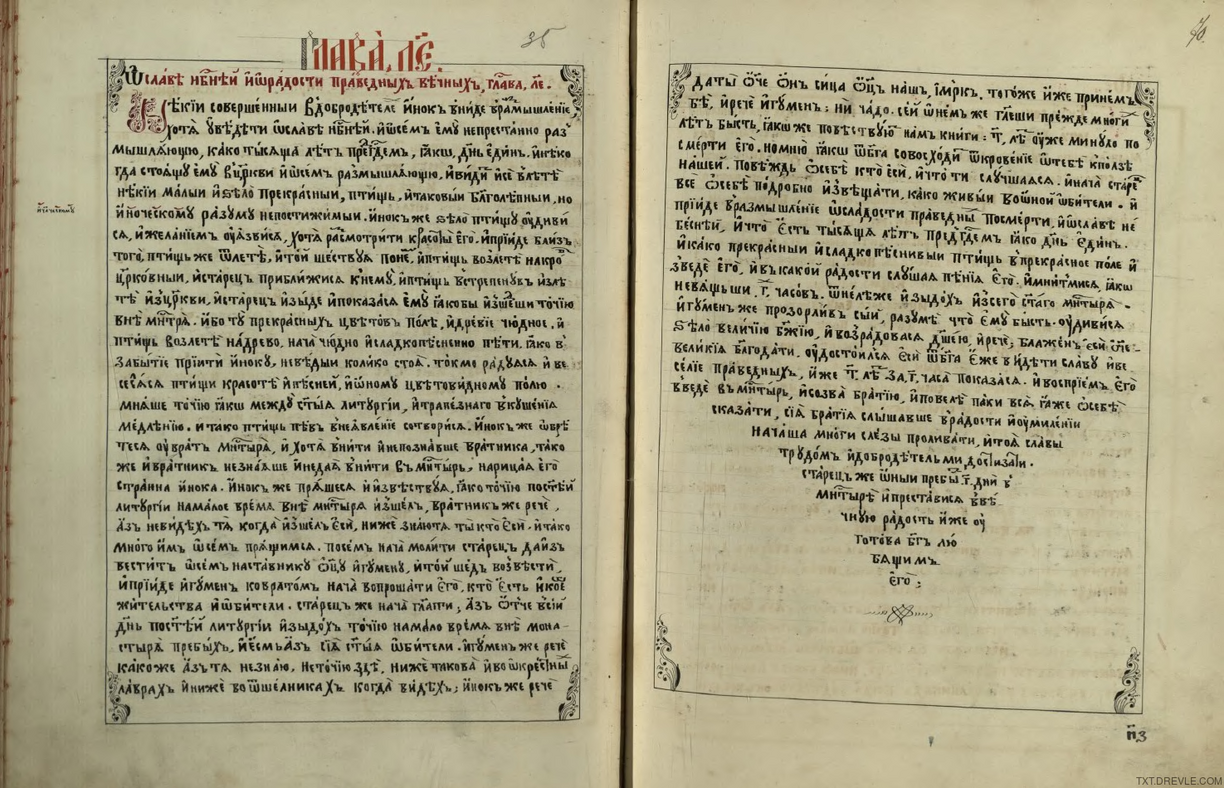 35
ГЛАВА, ЛЕ.
Ѡ славѣ нб҃нѣй и҆ ѡ҆ радости праведныхъ вѣчныхъ, глава, ле.
Нѣкїи совершенныи в добродѣтелѣ и҆нокъ вниде в размышленїе,
хотѧ ꙋ҆вѣдѣти ѡ҆ славѣ нб҃нѣй. и҆ ѡ҆ семъ є҆мꙋ непрестанно раз
мышлѧющꙋ, како тысѧща лѣтъ пред̾ гд҃емъ, ꙗ҆кѡ дн҃ь є҆динъ. и҆ нѣко
гда стоѧщꙋ є҆мꙋ в цр҃кви и҆ ѡ҆ семъ размышлѧющꙋ, и҆ види
нѣкїи малыи и҆ ѕѣло прекрасныи, птищь, и҆ таковыи бл҃голѣпныи, но
и҆ноческомꙋ разꙋмꙋ непостижимыи. и҆нокъ же ѕѣло птищꙋ ꙋ҆диви
сѧ, и҆ желанїемъ ꙋ҆ѧзвисѧ, хотѧ расмотрити красоты є҆го. и҆ прїиде близъ
того, птищь же ѿлетѣ, и҆ той шествꙋѧ по не. и҆ птищь возлетѣ на кро
цр҃ковныи, и҆ старецъ приближисѧ к немꙋ, и҆ птищь встрепенꙋвъ излѣ
тѣ и҆з̾ цр҃кви, и҆ старецъ и҆зыде и҆ показасѧ є҆мꙋ ꙗ҆кобы и҆зшедши точїю
внѣ мн҃трѧ. и҆бо тꙋ прекрасныхъ цвѣтовъ полѣ, и҆ древїе чюдное. и҆
птищь возлетѣ на древо, нача чюдно и҆ сладкопѣсненно пѣти. ꙗ҆ко в
забытїе прїити и҆нокꙋ, невѣдыи колико стоѧ. токмо радꙋѧсѧ и҆ ве
селѧсѧ птищи красотѣ и҆ пѣсней, и҆ ѡ҆номꙋ цвѣтовидномꙋ полю.
мнѧше точїю ꙗ҆кѡ междꙋ ст҃ыѧ литꙋргїи, и҆ трапезнаго вкꙋшенїѧ
медлѣнїю. и҆ тако птищь пѣвъ внеѧвленїе сотворисѧ. и҆нокъ же ѡ҆брѣ
тесѧ ꙋ҆ вратъ мн҃тырѧ, и҆ хотѧ внити и҆ непознавше вратника, тако
же и҆ вратникъ незнаѧше и҆ недаѧ внити въ мн҃тырь, нарицаѧ є҆го
странна и҆нока. и҆нокъ же прѧшесѧ и҆ и҆звѣствꙋѧ, ꙗ҆ко точїю по ст҃ѣй
литꙋргїи на малое времѧ внѣ мн҃тырѧ и҆зшелъ, вратникъ же рече,
а҆зъ невидѣхъ тѧ когда и҆зшелъ є҆си, ниже знаютъ ты кто є҆си. и҆ тако
много и҆мъ ѡ҆ семъ прѧщимсѧ. посемъ нача молити старецъ да и҆звѣ
веститъ ѡ҆ семъ наставникꙋ ѻ҆ц҃ꙋ и҆гꙋменꙋ, и҆ той шедъ возвѣсти,
и҆ прїиде и҆гꙋменъ ко вратомъ нача вопрошати є҆го, кто є҆сть и҆ коеѧ
жительства и҆ ѡ҆бители. старецъ же нача гл҃ати; а҆зъ ѻ҆тче в сїи
дн҃ь по ст҃ѣй литꙋргїи и҆зыдохъ точїю на мало времѧ внѣ мона
стырѧ пребыхъ, и҆ є҆смь а҆зъ сїѧ ст҃ыѧ ѡ҆бители. и҆гꙋменъ же рече
како же а҆зъ тѧ незнаю, не точїю здѣ, ниже такова и҆ во ѡ҆крестны
лаврахъ и҆ ниже во ѿшелникахъ когда видѣхъ; и҆нокъ же рече
70.
да ты ѻ҆ч҃е ѻ҆нъ сица ѻ҆ц҃ъ нашъ, і҆мрк. того же и҆же при немъ
бѣ, и҆ рече и҆гꙋменъ; ни чадо. сей ѡ҆ немъ же гл҃еши прежде многи
лѣтъ бысть, ꙗ҆кѡ же повѣствꙋю намъ книги; т҃, лѣ ꙋ҆же минꙋло по
смерти є҆го. но мню ꙗ҆кѡ ѿ бг҃а совосходи ѿкровенїе ѡ҆ тебѣ к ползѣ
нашей. повѣждь ѡ҆ себѣ кто є҆си, и҆ что ти слꙋчшаѧсѧ. и҆ нача старе
все ѡ҆ себѣ подробно и҆звѣщати, како живыи во ѡ҆ной ѡ҆бители. и҆
прїиде в размышленїе ѡ҆ сладости праведны по смерти, и҆ ѡ҆ славѣ не
беснѣй, и҆ что є҆сть тысѧща лѣтъ пред̾ гд҃емъ ꙗ҆ко дн҃ь є҆динъ.
и҆ како прекрасныи и҆ сладкопѣснивыи птищь в прекрасное поле и҆
зведе є҆го, и҆ въ какой радости слꙋшаѧ пѣнїѧ є҆го. и҆ мнитмисѧ, ꙗ҆кѡ
невѧщьши, г҃, часовъ. ѿнелѣже и҆зыдохъ и҆з̾ сего ст҃аго мн҃тырѧ.
и҆гꙋменъ же прозорливъ сыи, разꙋмѣ что є҆мꙋ бысть. ꙋ҆дивисѧ
ѕѣло величїю бж҃їю, и҆ возрадовасѧ дш҃ею, и҆ рече; блаженъ є҆си ѻ҆тче.
великїѧ благодати. ꙋ҆достоилсѧ є҆си ѿ бг҃а є҆же видѣти славꙋ и҆ ве
селїе праведныхъ, и҆же т҃, лѣ за, г҃, часа показасѧ. и҆ воспрїемъ є҆го
введе въ мн҃тырь, и҆ созва братїю, и҆ повелѣ паки всѧ ꙗ҆же ѡ҆ себѣ
сказати, сїѧ братїѧ слышавше в радости и҆ ꙋ҆миленїи
начаша многи слезы проливати, и҆ тоѧ славы
трꙋдомъ и҆ добродѣтельми, достизати.
старецъ же ѡ҆ныи пребы г҃, дни в
мн҃тырѣ и҆ престависѧ в вѣ
чнꙋю радость и҆же ꙋ҆
готова бг҃ъ лю
бѧщимъ
є҆го;
п҃з
TXT.DREVLE.COM